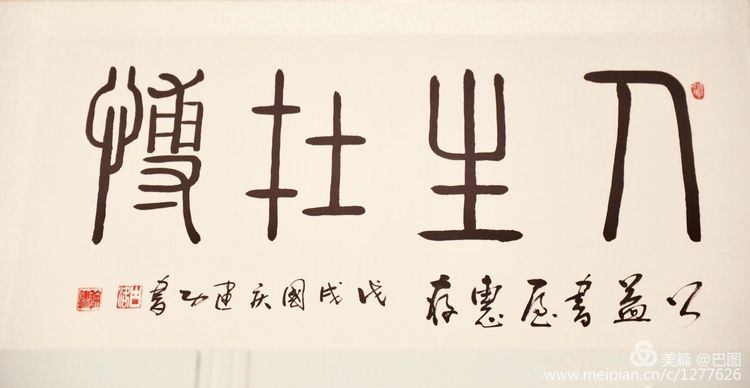 人生在搏
公益書屋惠存 戊戌國庆建功書
美篇 @巴图
www.meipian.cn/c/1277626